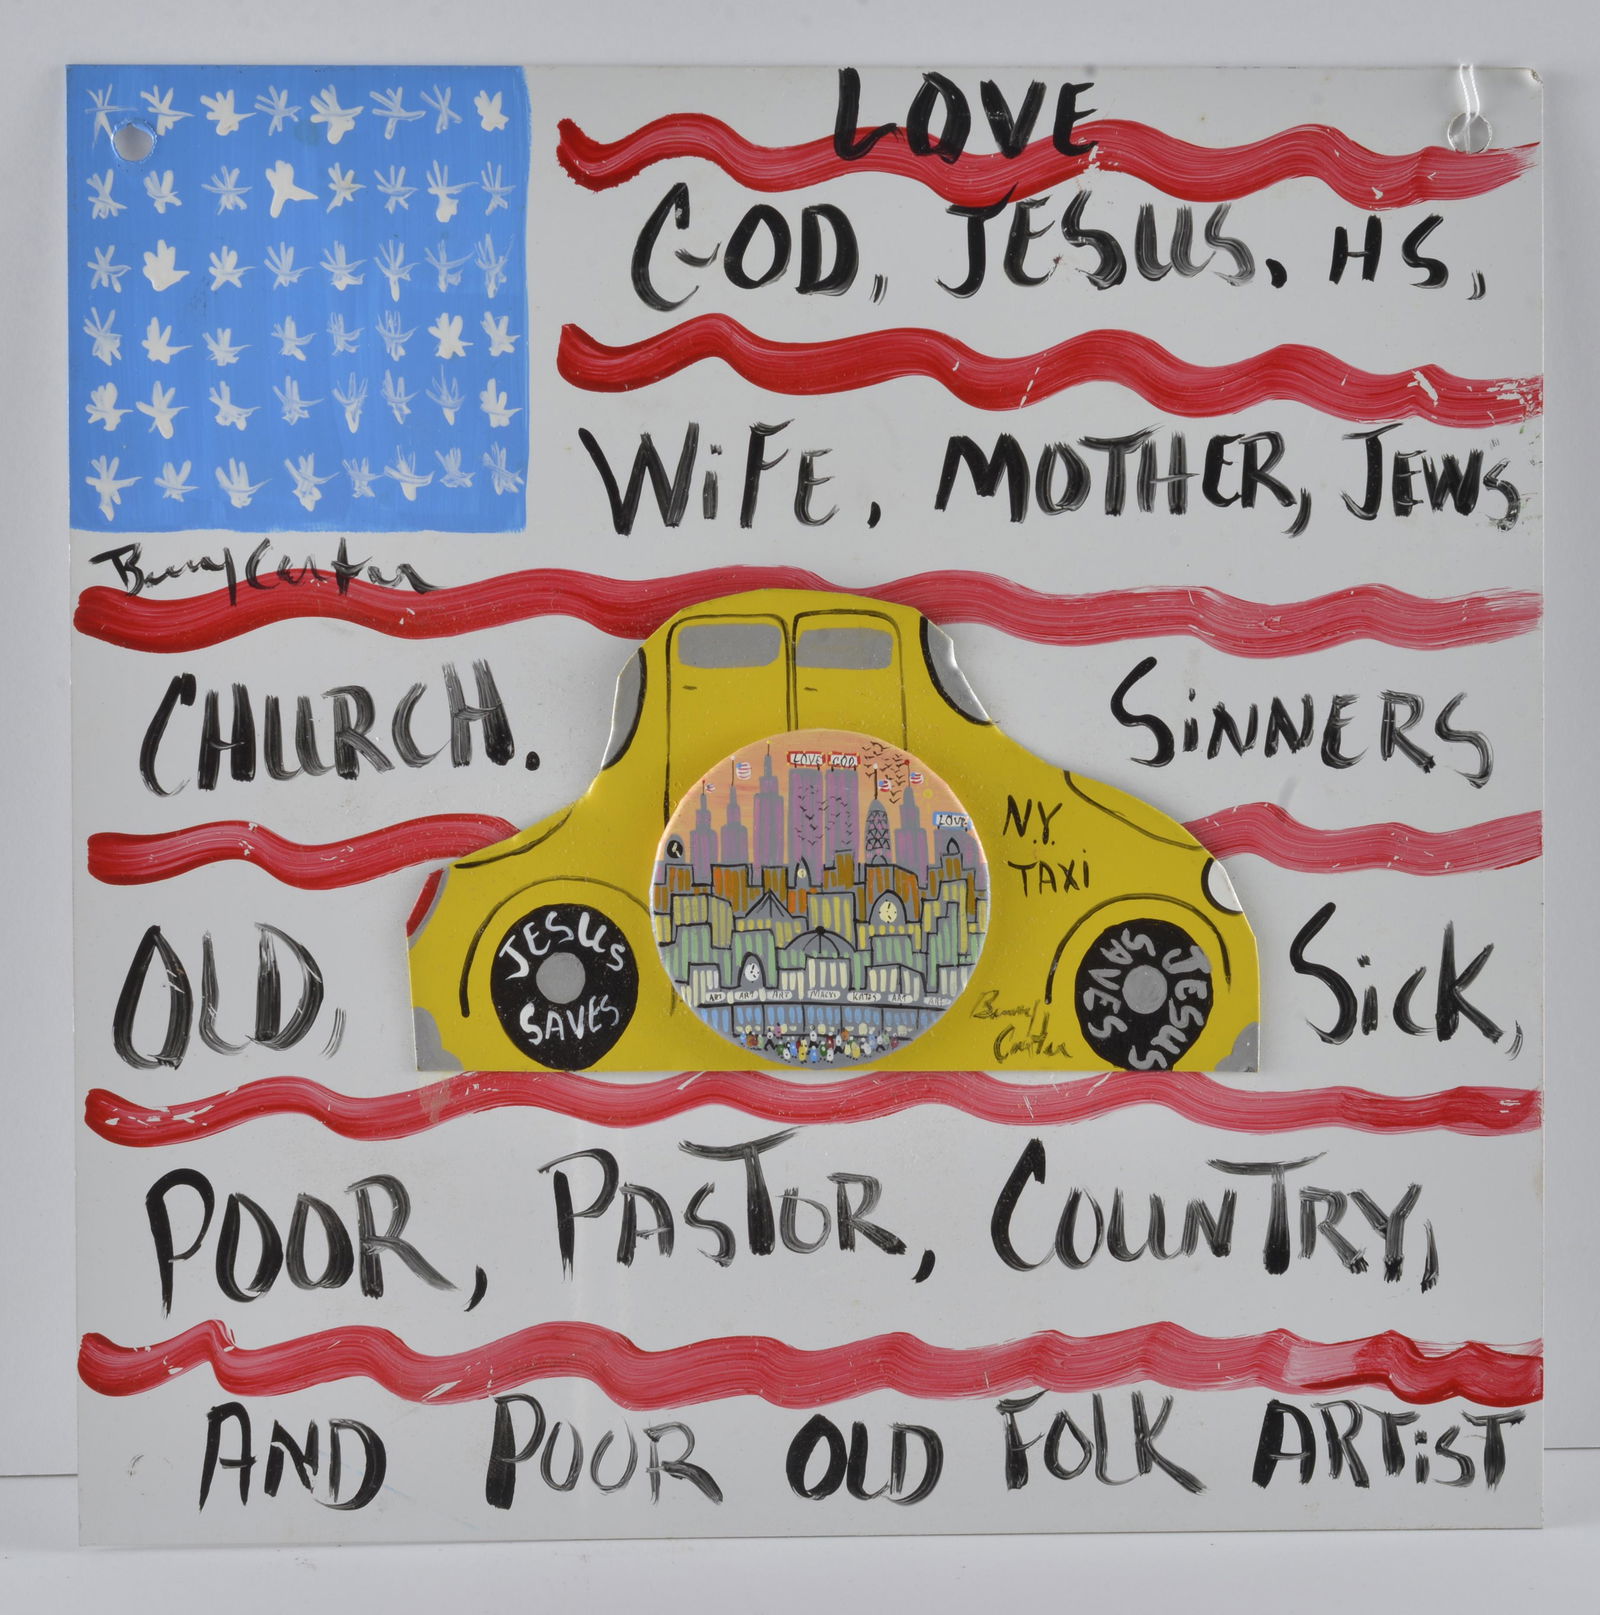 LOVE
GOD, JESUS, HS,
WiFE, MOTHER, JEWS
Benny Carter
CHURCH. SiNNERS
LOVE GOD
LOVE
N.Y.
TAXi
OLD, SiCK,
JESUS
SAVES
JESUS
SAVES
ART ART ART MACYS KATZS ART ART
Benny
Carter
POOR, PASTOR, COUNTRY,
AND POOR OLD FOLK ARTiST